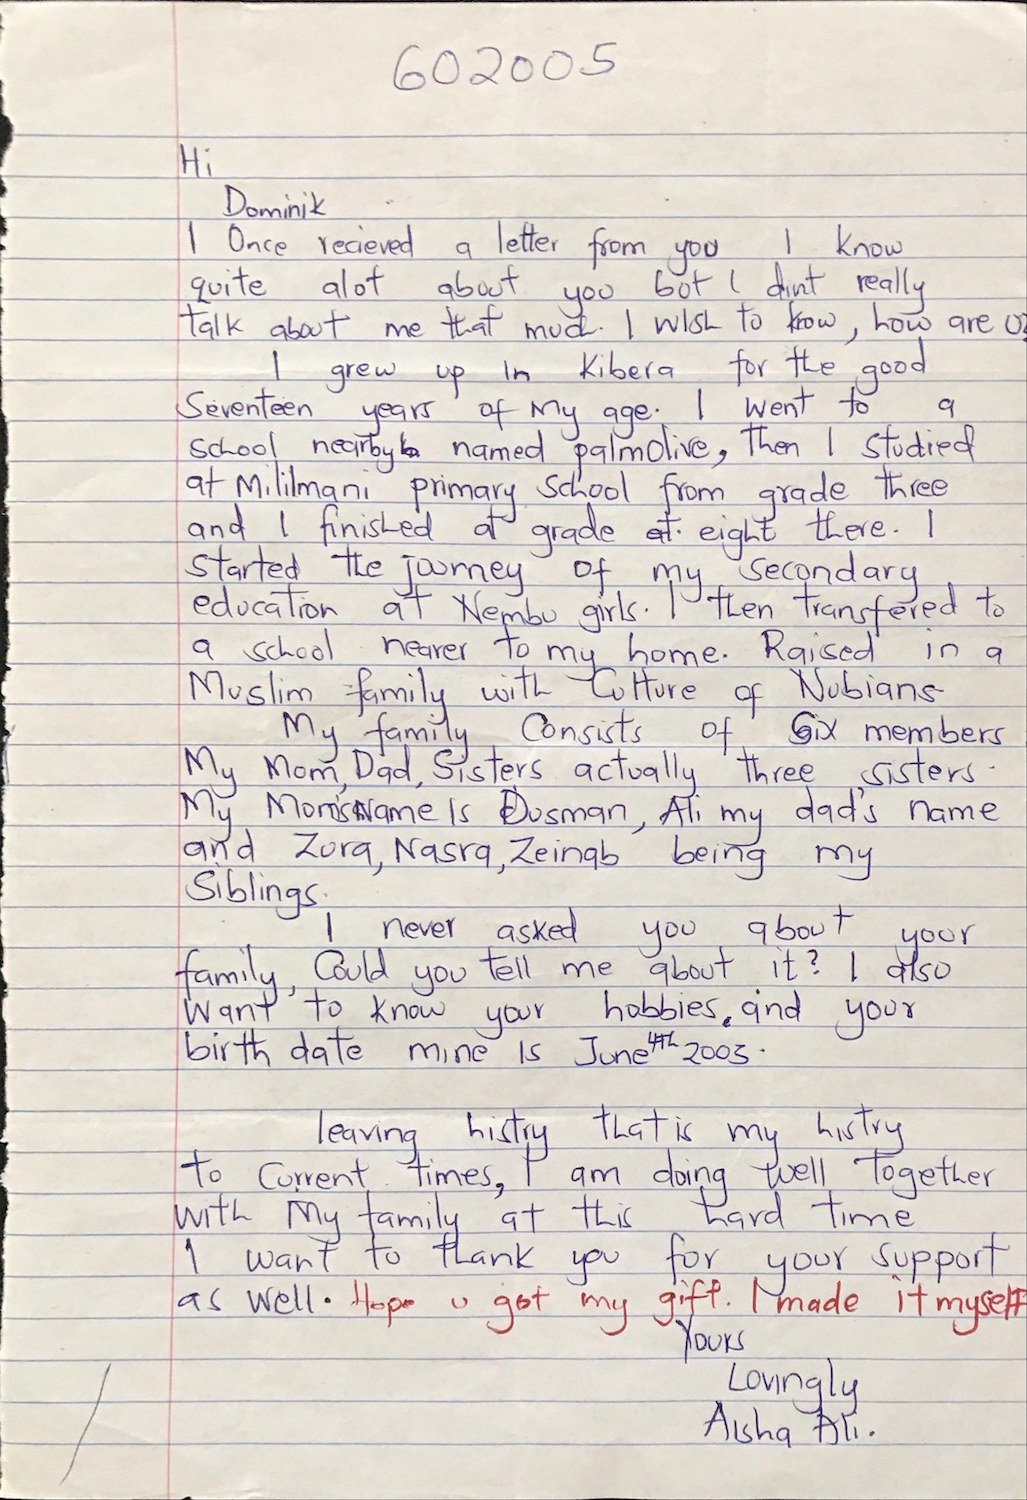 602005
Hi
Dominik
I Once recieved a letter from you I know
quite alot about you but I dint really
talk about me that much. I wish to know, how are u?
I grew up in Kibera for the good
Seventeen years of My age. I went to a
school nearby named palmolive, Then I studied
at Mililmani primary School from grade three
and I finished at grade at eight there. I
started the journey of my secondary
education at Nembu girls. I then transfered to
a school nearer to my home. Raised in a
Muslim family with Culture of Nubians
My family Consists of Six members
My Mom, Dad, Sisters actually three sisters.
My Mom's Name Is Dusman, Ali my dad's name
and Zora, Nasra, Zeinab being my
Siblings.
I never asked you about your
family, Could you tell me about it? I also
Want to know your hobbies, and your
birth date mine Is June 4th 2003.
leaving histry that is my histry
To Current times, I am doing well Together
with My family at this hard time
I want to thank you for your support
as well. Hope u got my gift. I made it myself
Yours
Lovingly
Aisha Ali.